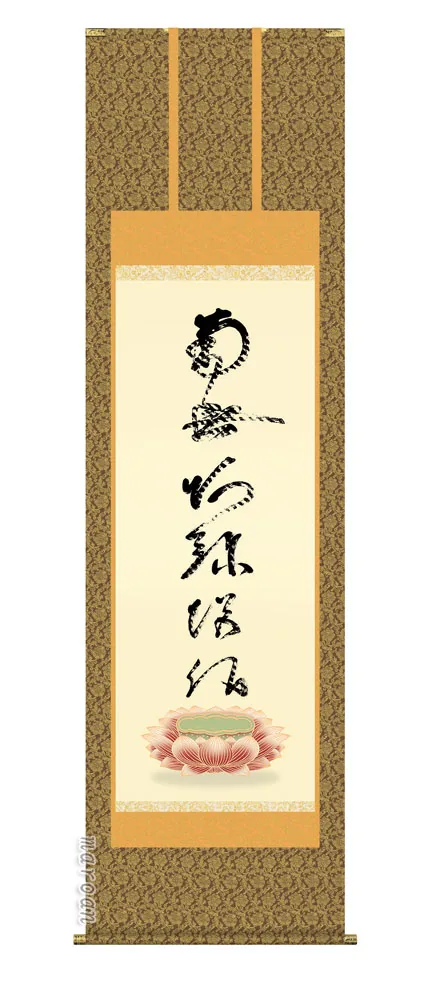 南無阿弥陀仏
maroan